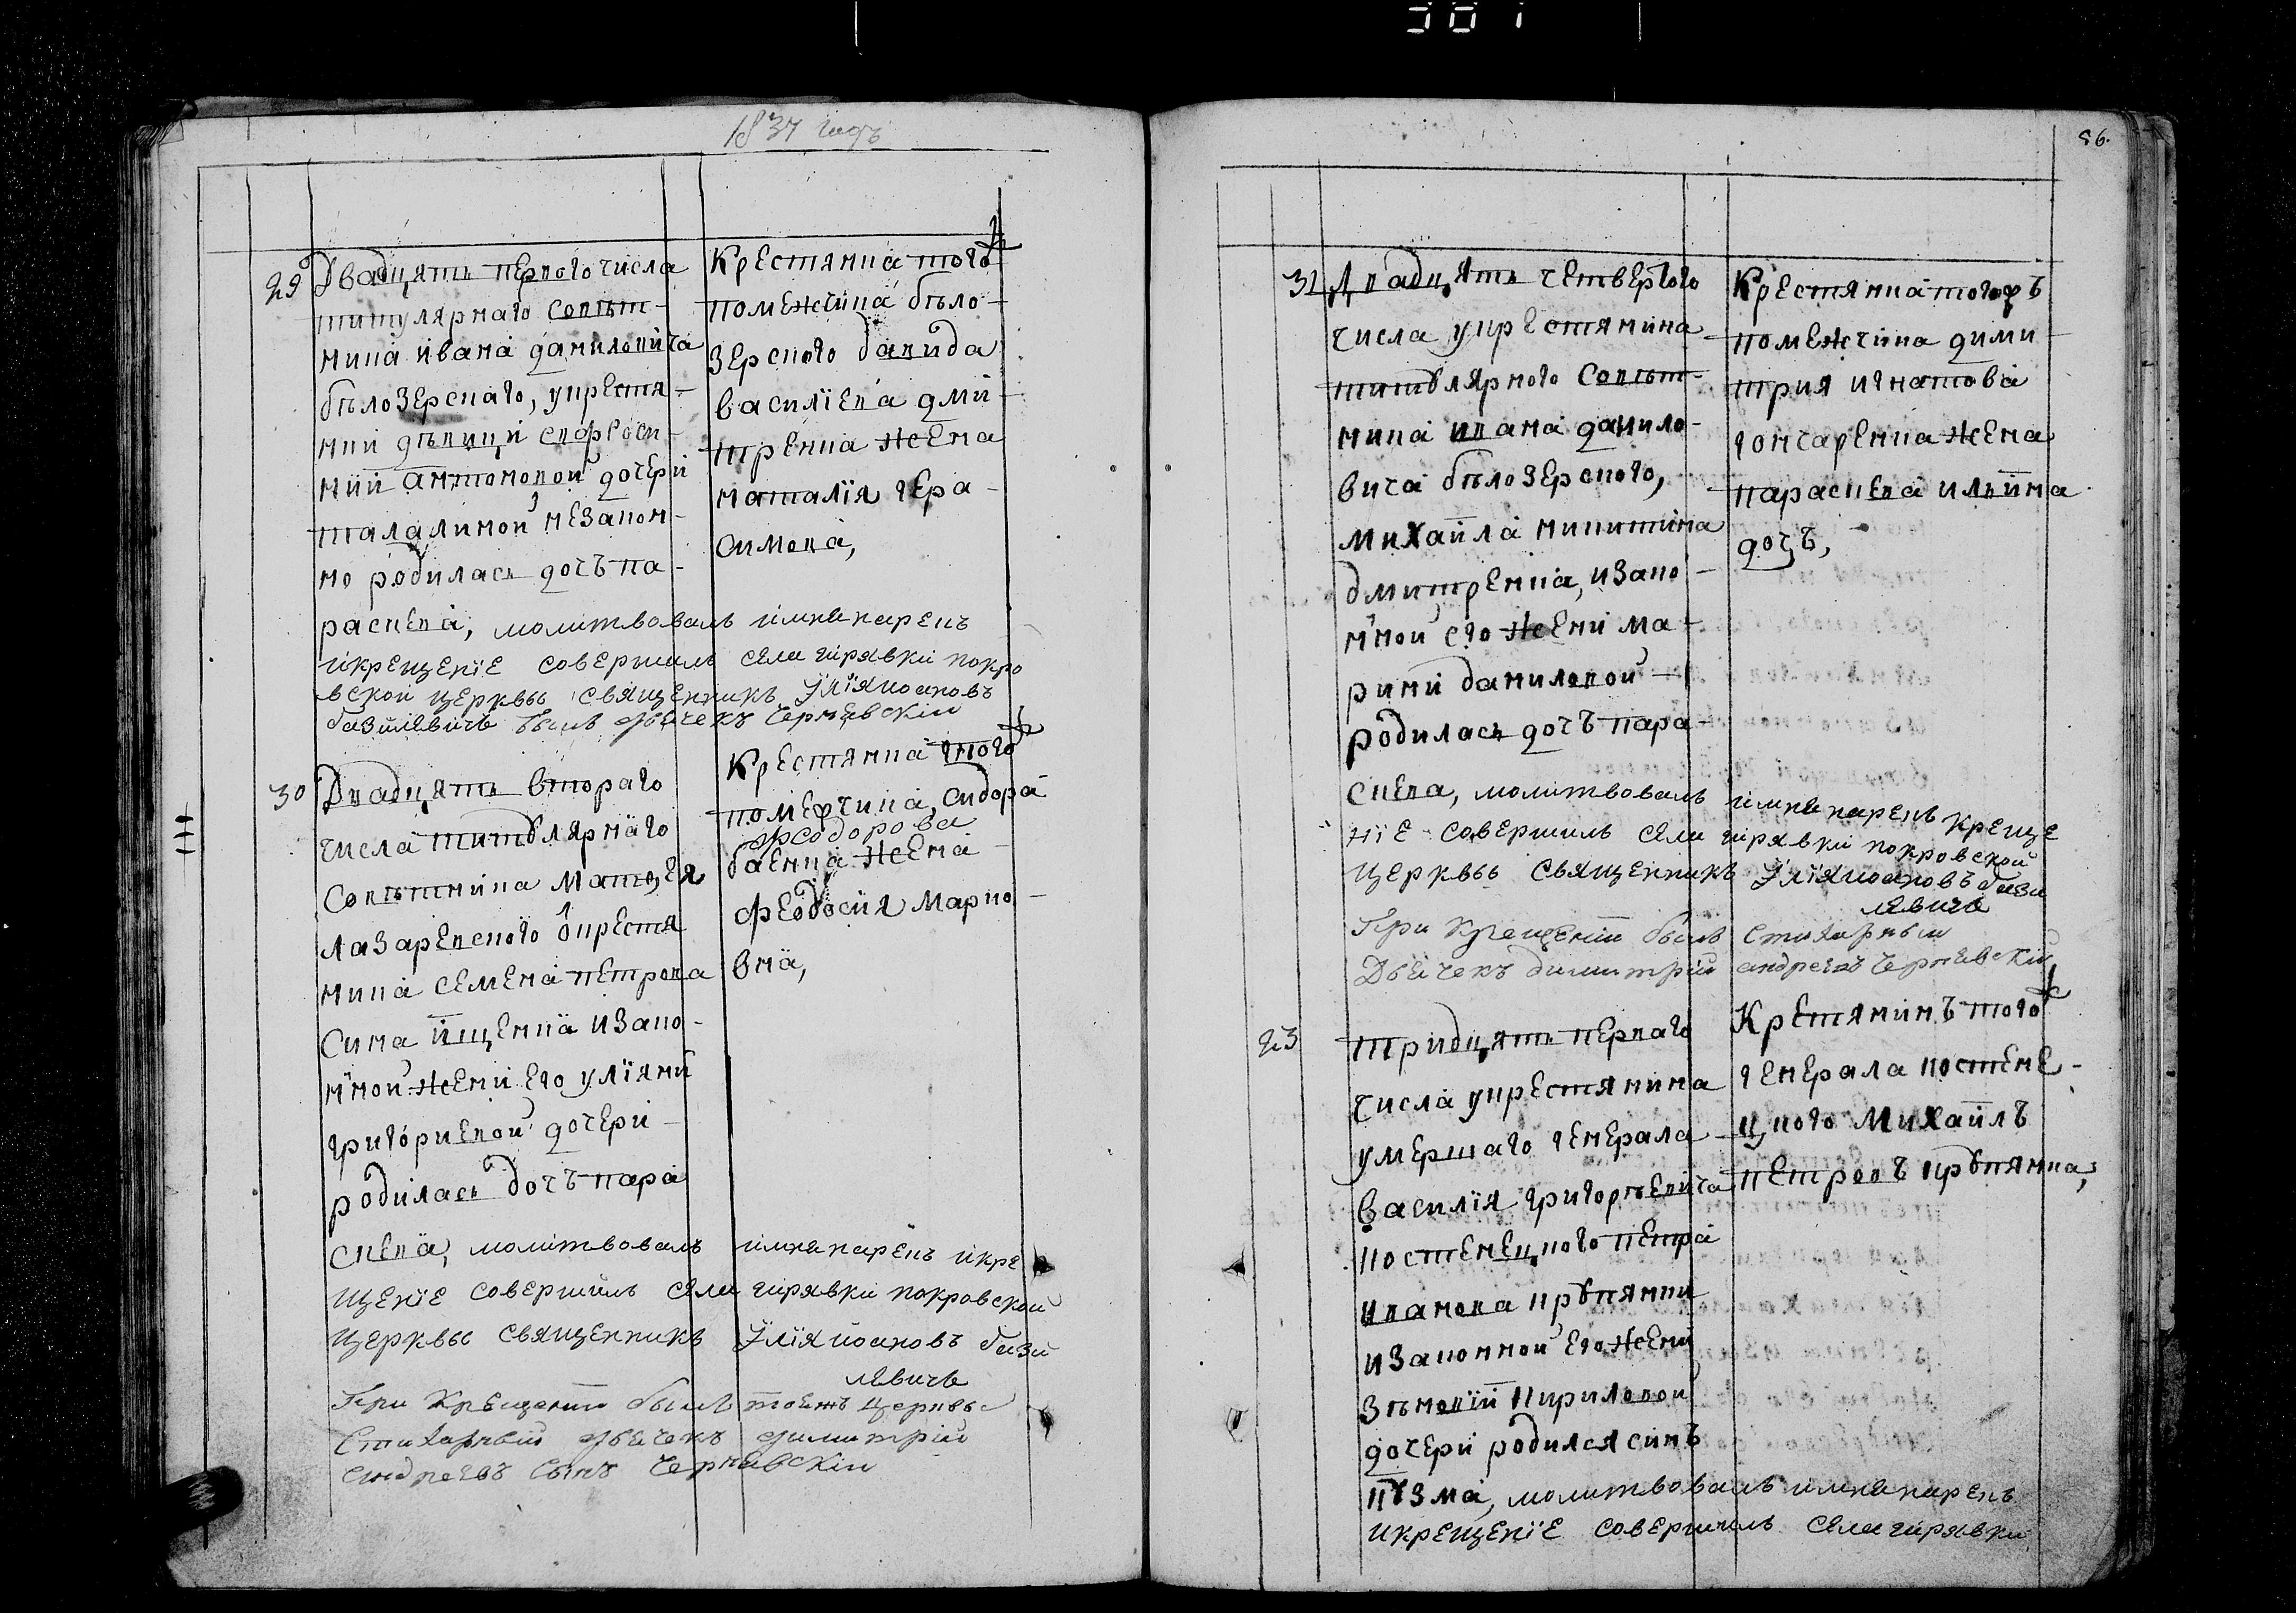 1837 годъ
29
Двадцять первого числа
титулярнаго совѣт-
ника ивана даниловича
бѣлозерскаго, укрестя-
нки дѣвици евфроси-
нии антоновой дочери
талалиной незакон-
но родилась дочъ па-
раскева, молитвовалъ имянарекъ
икрещенїе совершилъ села гирявки покро
вской церквы священникъ Улїя иоановъ
базилевичъ былъ дьячекъ Чернявскїй
Крестянка того
помещика бѣло-
зерского давида
василїева дми-
тренка жена
наталїя гера-
симова,
30
Двадцять второго
числа титулярнаго
Совѣтника Матфея
лазаревского укрестя
нина семена петрова
сина ищенка изако-
нной жени его улїяни
григориевой дочери
родилась дочъ пара
скева, молитвовалъ имянарекъ икре
щенїе совершилъ села гирявки покровской
церквы священникъ Улїя иоановъ бази
левичъ
При крещении былъ тоежъ церквы
Стихарный дьячекъ димитрий
андреевъ сынъ Чернявскїй
Крестянка того
помещика, сидора
федорова
баенка жена
феодосия марко-
вна,
86.
31
Двадцять четвертого
числа укрестянина
титулярного Совѣт-
ника ивана данило-
вича бѣлозерского,
михаила никитина
дмитренка, изако-
нной его жени ма-
рини даниловой
родилась дочъ пара-
скева, молитвовалъ имянарекъ креще
нїе совершилъ села гирявки покровской
церквы священникъ Улїя иоановъ бази
левичъ
При крещении былъ Стихарный
Дьячекъ димитрий андреевъ Чернявскїй
Крестянка тогожъ
помещика дими-
трия игнатова
гончаренка жена
параскева илїина
дочъ,
23
тридцять перваго
числа укрестянина
умершаго генерала
василїя григорьевича
костенецкого петра
иванова крупянки
изаконной его жени
зѣновїи кириловой
дочери родился синъ
кузма, молитвовалъ имянарекъ
икрещенїе совершилъ села гирявки
Крестянинъ того
генерала костене-
цкого Михаилъ
петровъ крупянка,